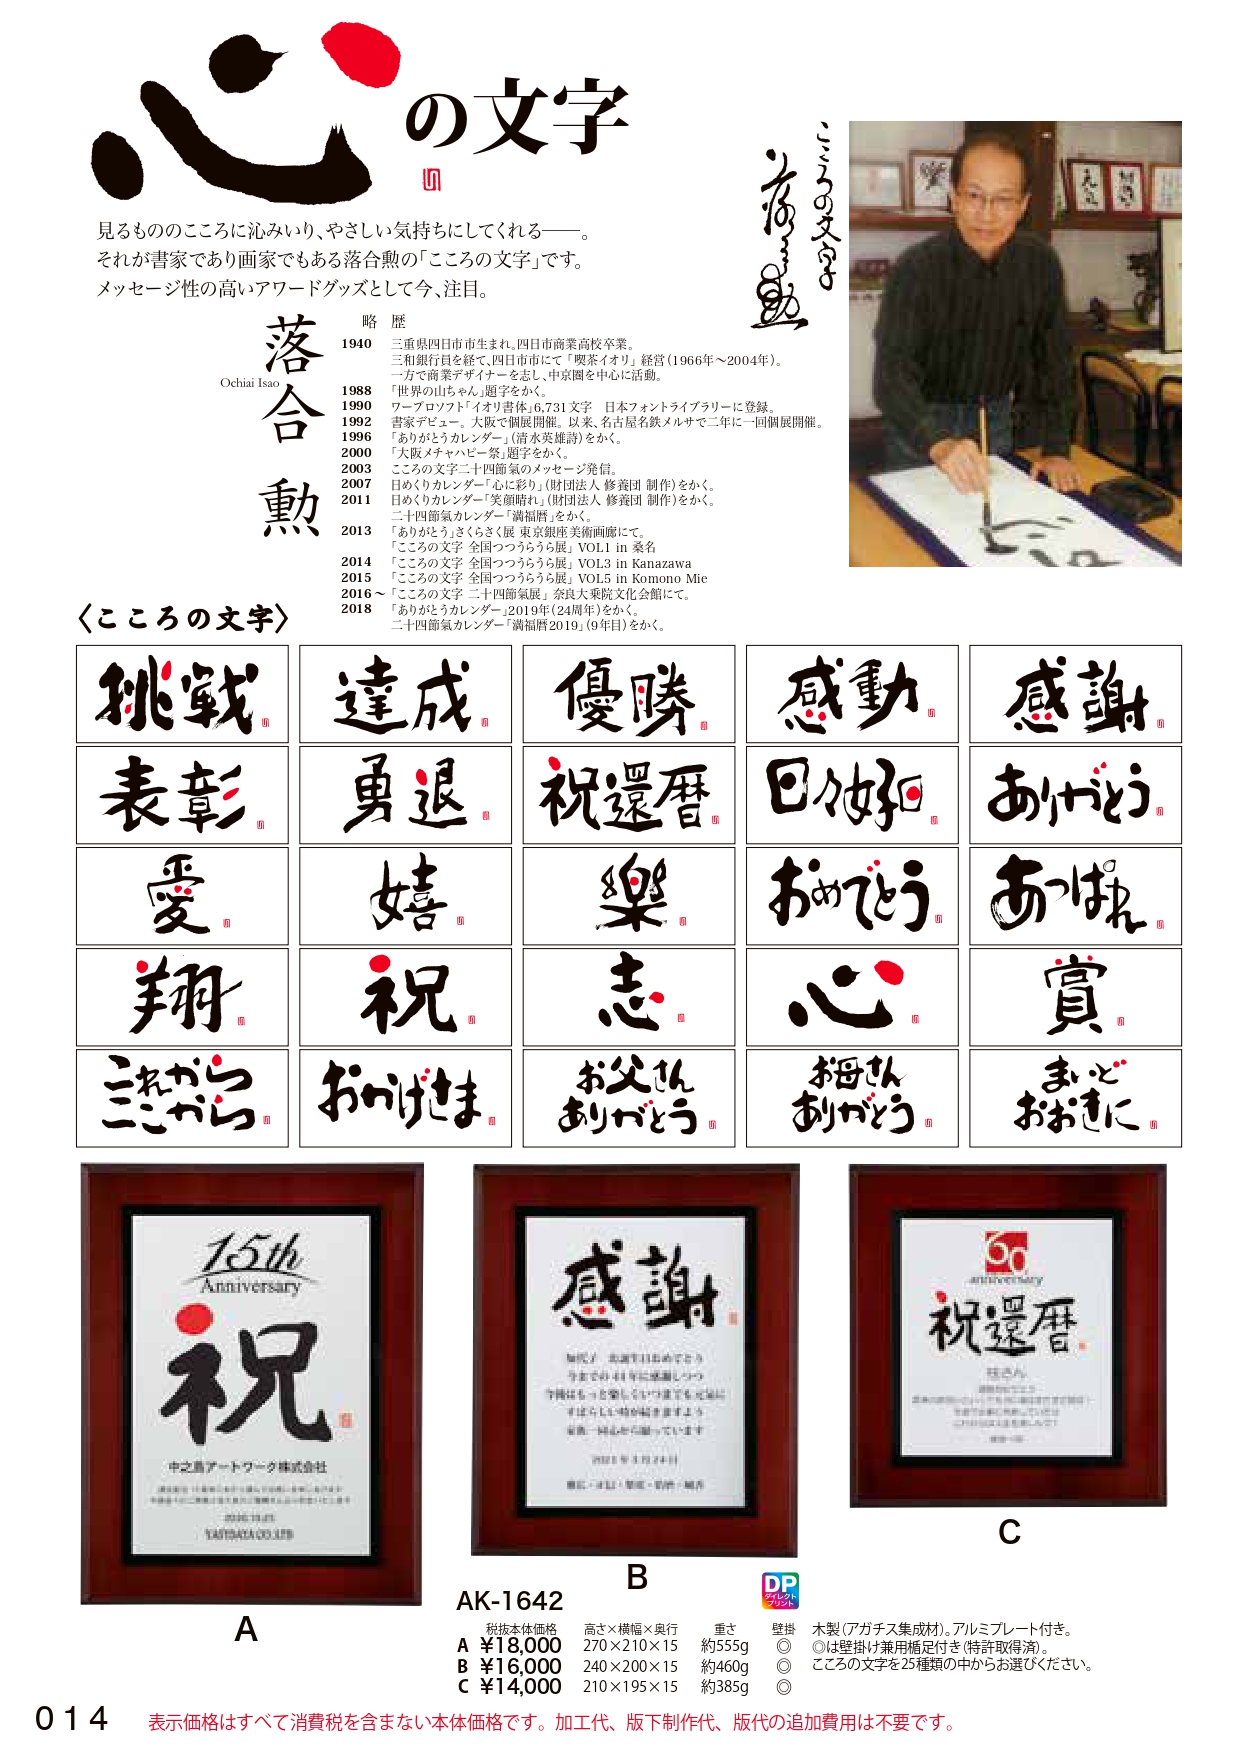 心の文字
見るもののこころに沁みいり、やさしい気持ちにしてくれる――。
それが書家であり画家でもある落合勲の「こころの文字」です。
メッセージ性の高いアワードグッズとして今、注目。
こころの文字
落合勲
Ochiai Isao
略 歴
1940 三重県四日市市生まれ。四日市商業高校卒業。
三和銀行員を経て、四日市市にて「喫茶イオリ」経営(1966年～2004年)。
一方で商業デザイナーを志し、中京圏を中心に活動。
1988 「世界の山ちゃん」題字をかく。
1990 ワープロソフト「イオリ書体」6,731文字 日本フォントライブラリーに登録。
1992 書家デビュー。大阪で個展開催。以来、名古屋名鉄メルサで二年に一回個展開催。
1996 「ありがとうカレンダー」(清水英雄詩)をかく。
2000 「大阪メチャハピー祭」題字をかく。
2003 こころの文字二十四節氣のメッセージ発信。
2007 日めくりカレンダー「心に彩り」(財団法人 修養団 制作)をかく。
2011 日めくりカレンダー「笑顔晴れ」(財団法人 修養団 制作)をかく。
二十四節氣カレンダー「満福暦」をかく。
2013 「ありがとう」さくらさく展 東京銀座美術画廊にて。
「こころの文字 全国つつうらうら展」 VOL1 in 桑名
2014 「こころの文字 全国つつうらうら展」 VOL3 in Kanazawa
2015 「こころの文字 全国つつうらうら展」 VOL5 in Komono Mie
2016～ 「こころの文字 二十四節氣展」 奈良大乗院文化会館にて。
2018 「ありがとうカレンダー」2019年(24周年)をかく。
二十四節氣カレンダー「満福暦2019」(9年目)をかく。
〈こころの文字〉
挑戦 達成 優勝 感動 感謝
表彰 勇退 祝還暦 日々好日 ありがとう
愛 嬉 樂 おめでとう あっぱれ
翔 祝 志 心 賞
これから
ここから
おかげさま
お父さん
ありがとう
お母さん
ありがとう
まいど
おおきに
15th
Anniversary
祝
中之島アートワーク株式会社
A
感謝
今までの44年に感謝しつつ
今後はもっと楽しくいつまでも元気に
すばらしい時が続きますよう
家族一同心から願っています
B
60
anniversary
祝還暦
C
AK-1642
DP
ダイレクト
プリント
税抜本体価格 高さ×横幅×奥行 重さ 壁掛
A ¥18,000 270×210×15 約555g ◎
B ¥16,000 240×200×15 約460g ◎
C ¥14,000 210×195×15 約385g ◎
木製(アガチス集成材)。アルミプレート付き。
◎は壁掛け兼用楯足付き(特許取得済)。
こころの文字を25種類の中からお選びください。
014 表示価格はすべて消費税を含まない本体価格です。加工代、版下制作代、版代の追加費用は不要です。